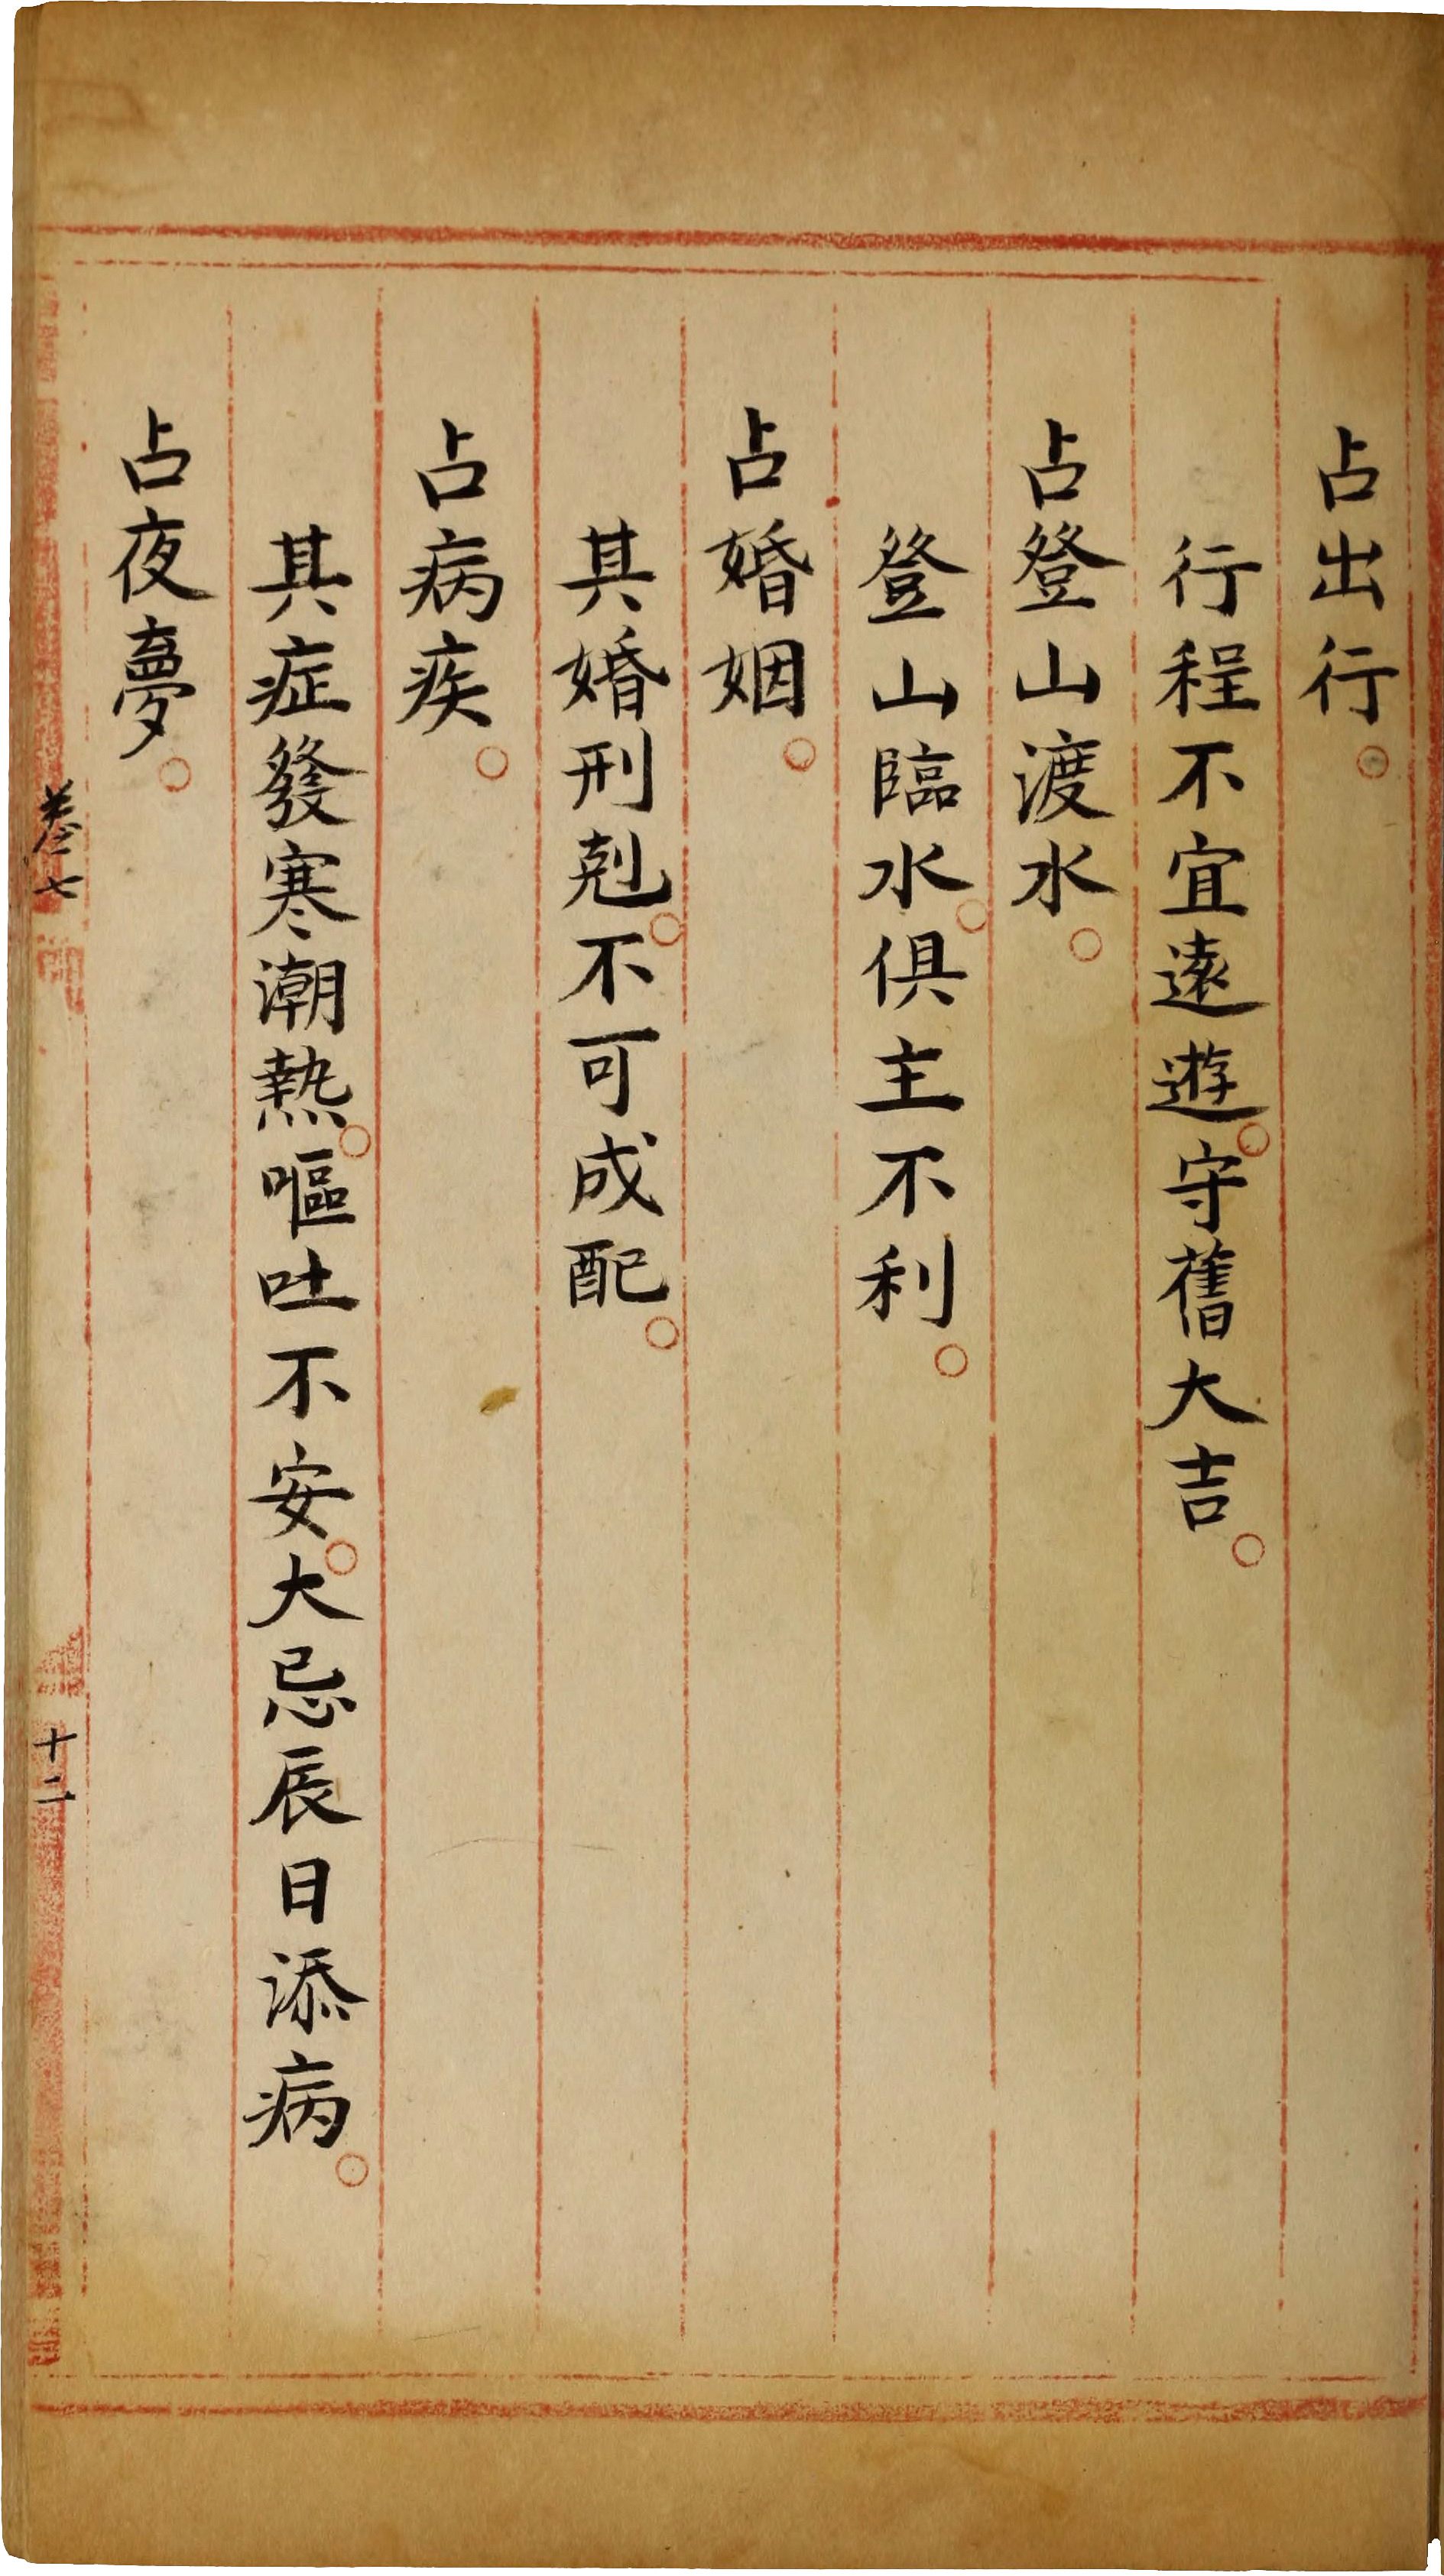 占出行。
行程不宜遠遊。守舊大吉。
占登山渡水。
登山臨水。俱主不利。
占婚姻。
其婚刑剋。不可成配。
占病疾。
其症發寒潮熱。嘔吐不安。大忌辰日添病。
占夜夢。
卷七
十二